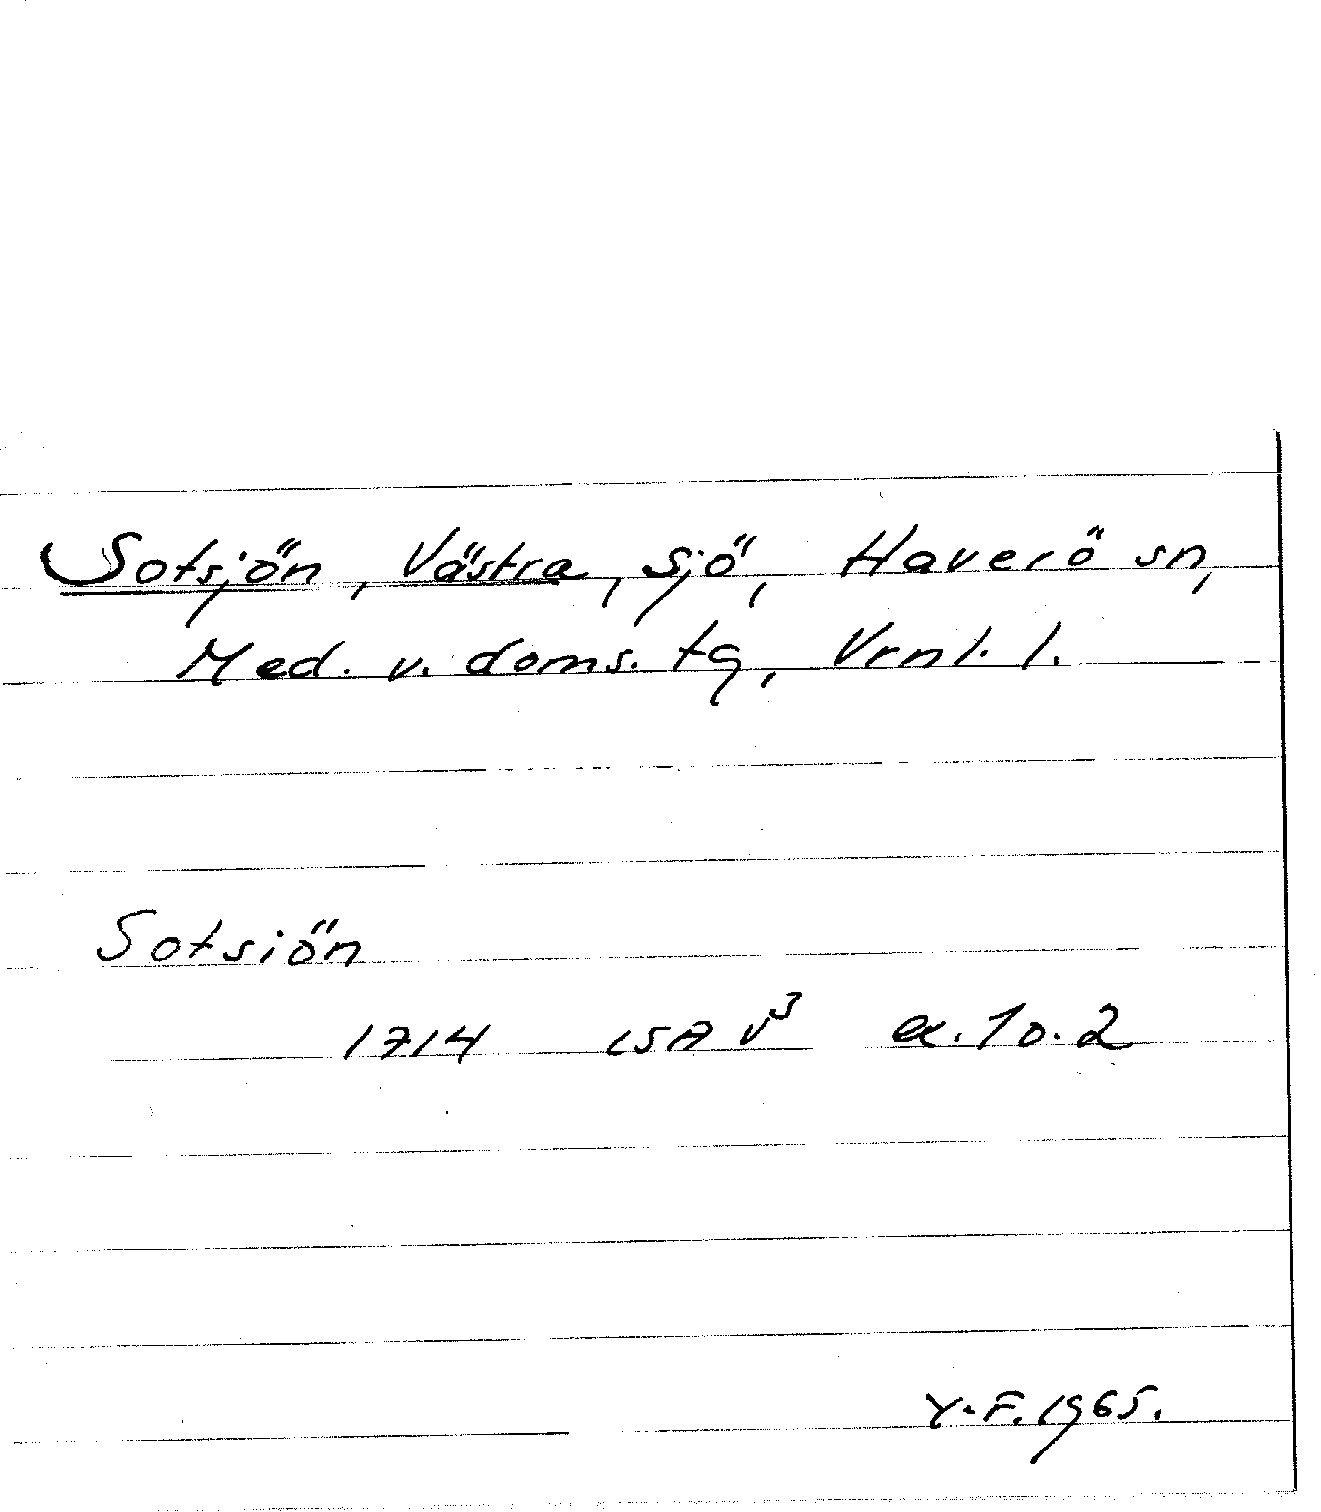 Sotsjön, Västra, sjö, Haverö sn,
Med. v. doms. tg, Vrnl. l.
Sotsiön
1714 LSA V³ ex. 1 o. 2
Y.F. 1965.